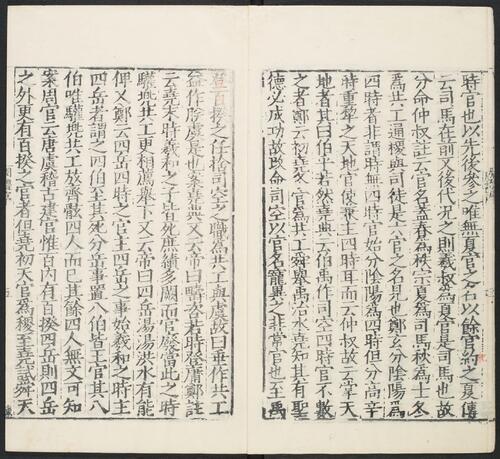 時官也以先後參之唯無夏官之名以餘官約之夏傳
云司馬在前又後代況之則羲叔為夏官是司馬也故
分命仲叔註云官名蓋春為秩宗夏為司馬秋為士冬
為共工通稷與司徒是六官之名見也鄭玄分陰陽為
四時者非謂時無四時官始分陰陽為四時但分高辛
時重黎之天地官使兼主四時耳而云仲叔故云掌天
地者其曰伯乎若然堯典云伯禹作司空四時官不數
之者鄭云初堯冬官為共工舜舉禹治水堯知其有聖
德必成功故改命司空以官名寵異之非常官也至禹
登百揆之任捨司空之職為共工與虞故曰垂作共工
益作朕虞是也案堯典又云帝曰疇咨若時登庸鄭註
云堯末時羲和之子皆死庶績多闕而官廢當此之時
驩兜共工更相薦舉下又云帝曰四岳湯湯洪水有能
俾乂鄭云四岳四時之官主四岳之事始羲和之時主
四岳者謂之四伯至其死分岳事置八伯皆王官其八
伯唯驩兜共工放齊鯀四人而已其餘四人無文可知
案周官云唐虞稽古建官惟百內有百揆四岳則四岳
之外更有百揆之官者但堯初天官為稷至堯試舜天